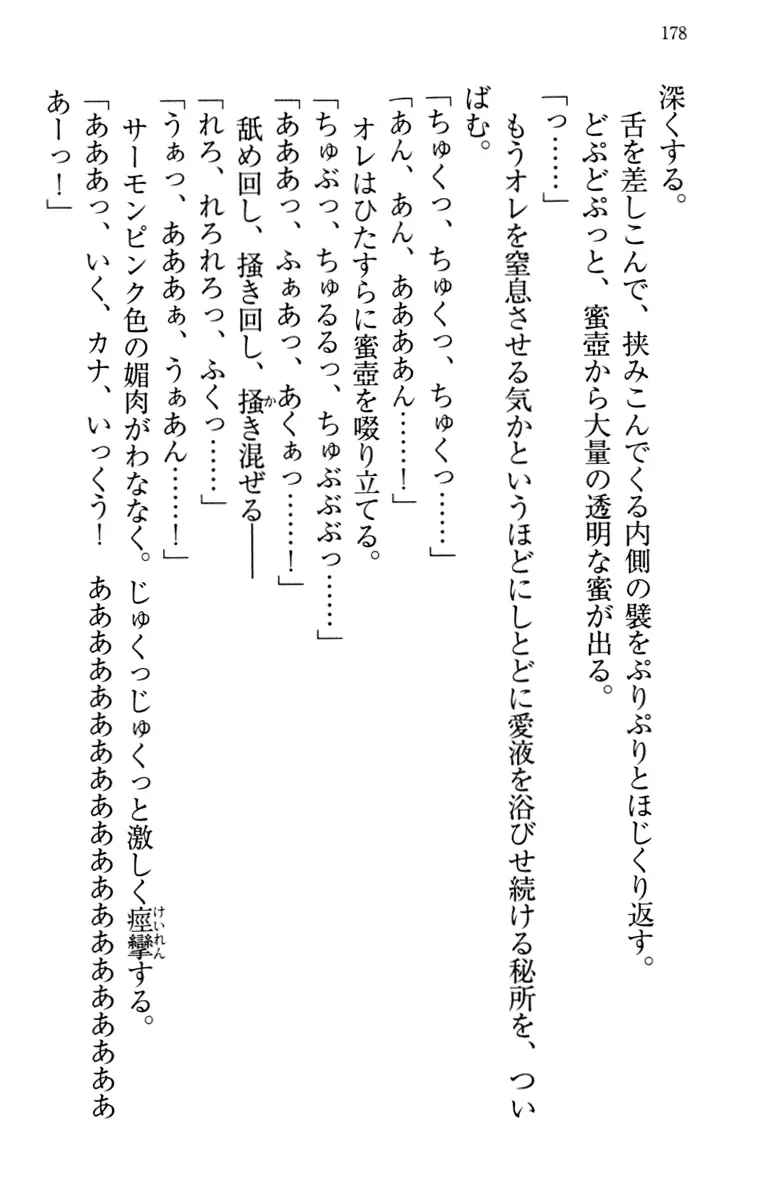 178
深くする。
舌を差しこんで、挟みこんでくる内側の襞をぷりぷりとほじくり返す。
どぷどぷっと、蜜壺から大量の透明な蜜が出る。
「っ……」
もうオレを窒息させる気かというほどにしとどに愛液を浴びせ続ける秘所を、つい
ばむ。
「ちゅくっ、ちゅくっ、ちゅくっ……」
「あん、あん、ああああん……！」
オレはひたすらに蜜壺を啜り立てる。
「ちゅぶっ、ちゅるるっ、ちゅぶぶぶっ……」
「あああっ、ふぁあっ、あくぁっ……！」
舐め回し、掻き回し、掻き混ぜる――
「れろ、れろれろっ、ふくっ……」
「うぁっ、あああぁ、うぁあん……！」
サーモンピンク色の媚肉がわななく。じゅくっじゅくっと激しく痙攣する。
「あああっ、いく、カナ、いっくう！　ああああああああああああああああああああ
あーっ！」